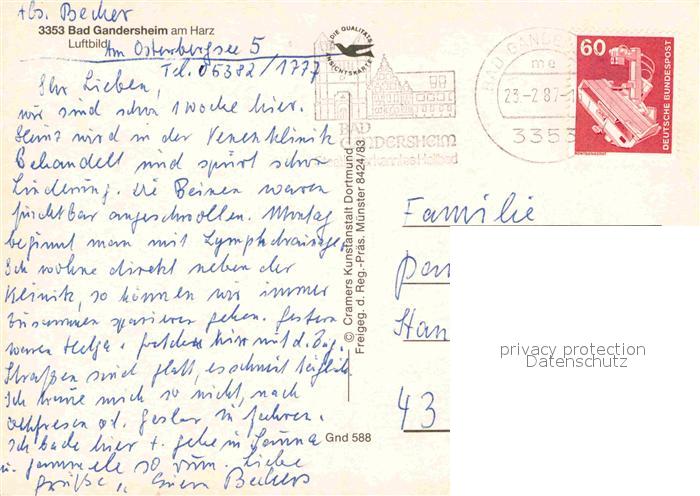 Abs. Becker
3353 Bad Gandersheim am Harz
Luftbild
Am Osterbergsee 5
Tel. 05382/1777
Ihr Lieben,
wir sind schon 1 Woche hier.
Heinz wird in der Venenklinik
behandelt und spürt schon
Linderung. Die Beinen waren
furchtbar angeschwollen. Montag
beginnt man mit Lymphdrainage.
Ich wohne direkt neben der
Klinik, so können wir immer
zusammen spazieren gehen. Gestern
waren Helga + hier mit d. Zug.
Straßen sind glatt, es schneit täglich.
Ich traue mich so nicht, nach
od. Goslar zu fahren.
Ich bade hier + gehe in Sauna
u. so rum. Liebe
Grüße, Beckers
DIE QUALITÄTS
ANSICHTSKARTE
BAD
GANDERSHEIM
Heilbad
BAD GANDERS
me
23-2.87-1
3353
60
DEUTSCHE BUNDESPOST
RÖNTGENGERÄT
© Cramers Kunstanstalt Dortmund
Freigeg. d. Reg.-Präs. Münster 8424/83
Gnd 588
Familie
43
privacy protection
Datenschutz